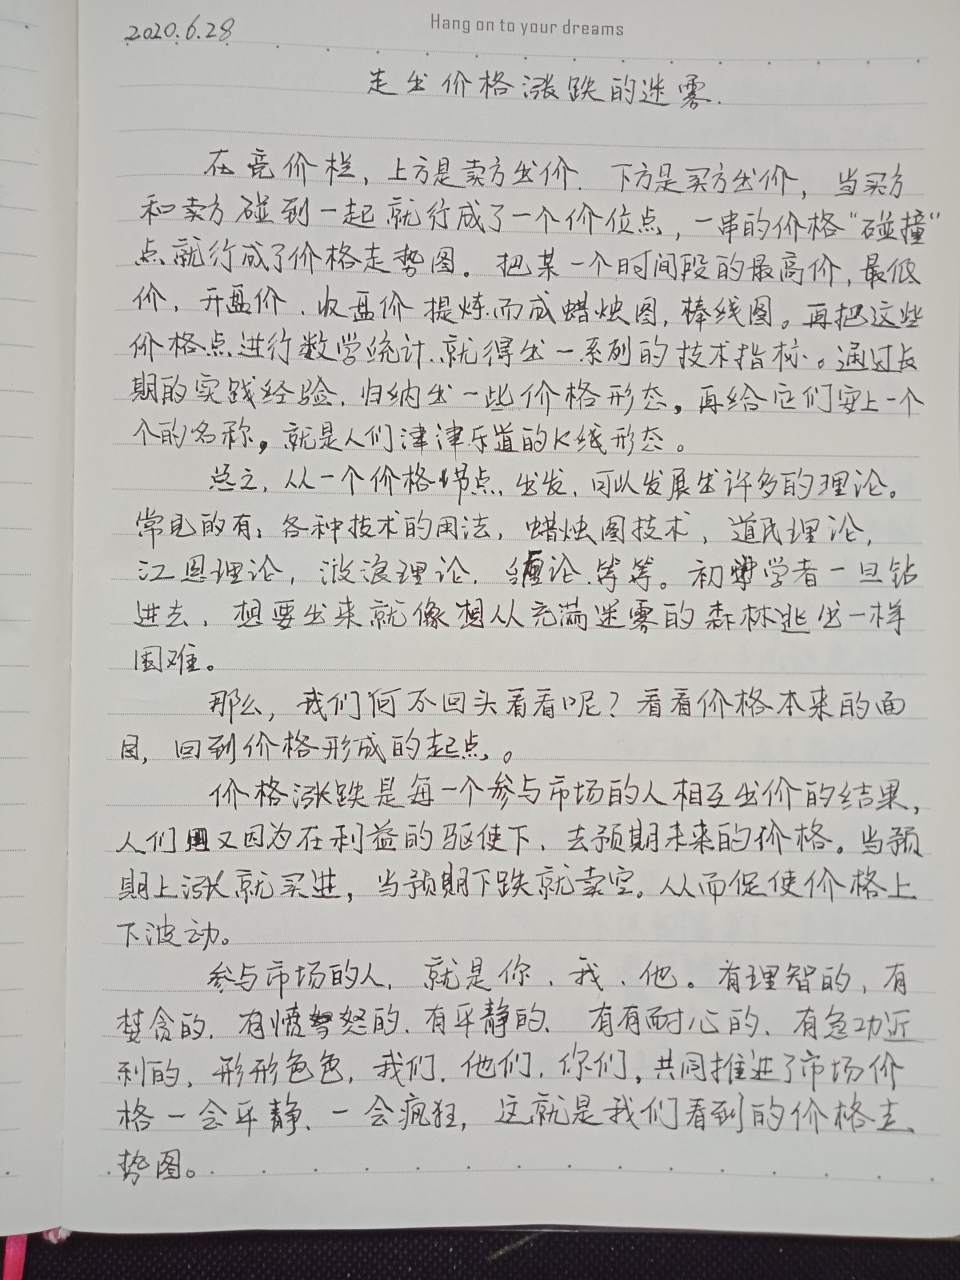 2020.6.28
Hang on to your dreams
走出价格涨跌的迷雾.
在竞价栏，上方是卖方出价. 下方是买方出价，当买方
和卖方碰到一起就行成了一个价位点，一串的价格“碰撞”
点就行成了价格走势图。把某一个时间段的最高价，最低
价，开盘价、收盘价提炼而成蜡烛图，棒线图。再把这些
价格点进行数学统计、就得出一系列的技术指标。通过长
期的实践经验、归纳出一些价格形态，再给它们安上一个
个的名称，就是人们津津乐道的K线形态。
总之，从一个价格节点、出发，可以发展出许多的理论。
常见的有：各种技术的用法，蜡烛图技术，道氏理论，
江恩理论，波浪理论，缠论、等等。初学者一旦钻
进去，想要出来就像想从充满迷雾的森林逃出一样
困难。
那么，我们何不回头看看呢？看看价格本来的面
目，回到价格形成的起点、。
价格涨跌是每一个参与市场的人相互出价的结果，
人们又因为在利益的驱使下、去预期未来的价格。当预
期上涨就买进，当预期下跌就卖空。从而促使价格上
下波动。
参与市场的人，就是你、我、他。有理智的，有
贪的、有愤怒的、有平静的、有有耐心的、有急功近
利的、形形色色，我们，他们，你们，共同推进了市场价
格一会平静、一会疯狂，这就是我们看到的价格走
势图。